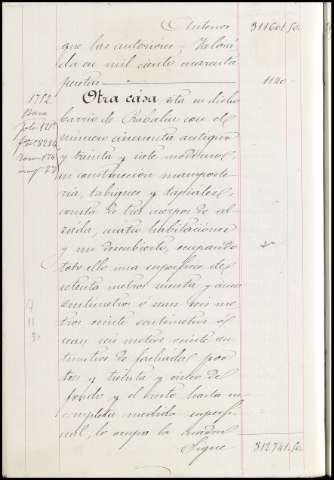 Anterior 311601.50.
que las anteriores; valori-
da en mil ciento cuarenta
pesetas 1140 -
1712 Otra casa sita en dicho
barrio de Rabalu con el
número cincuenta antiguo
y treinta y siete moderno,
su construcción mamposte-
ria, tabiques y
consta de tres cuerpos de al-
zada, cuatro habitaciones
y un descubierto, ocupando
todo ello una superficie de
setenta metros sesenta y cinco
centímetros o sean seis me-
tros veinte centímetros o
sean seis metros veinte cen-
tímetros de fachada por
tes y treinta y cinco de
fondo y el resto hasta su
completa medida superfi-
cial, lo ocupa la
Sigue 312741.50.